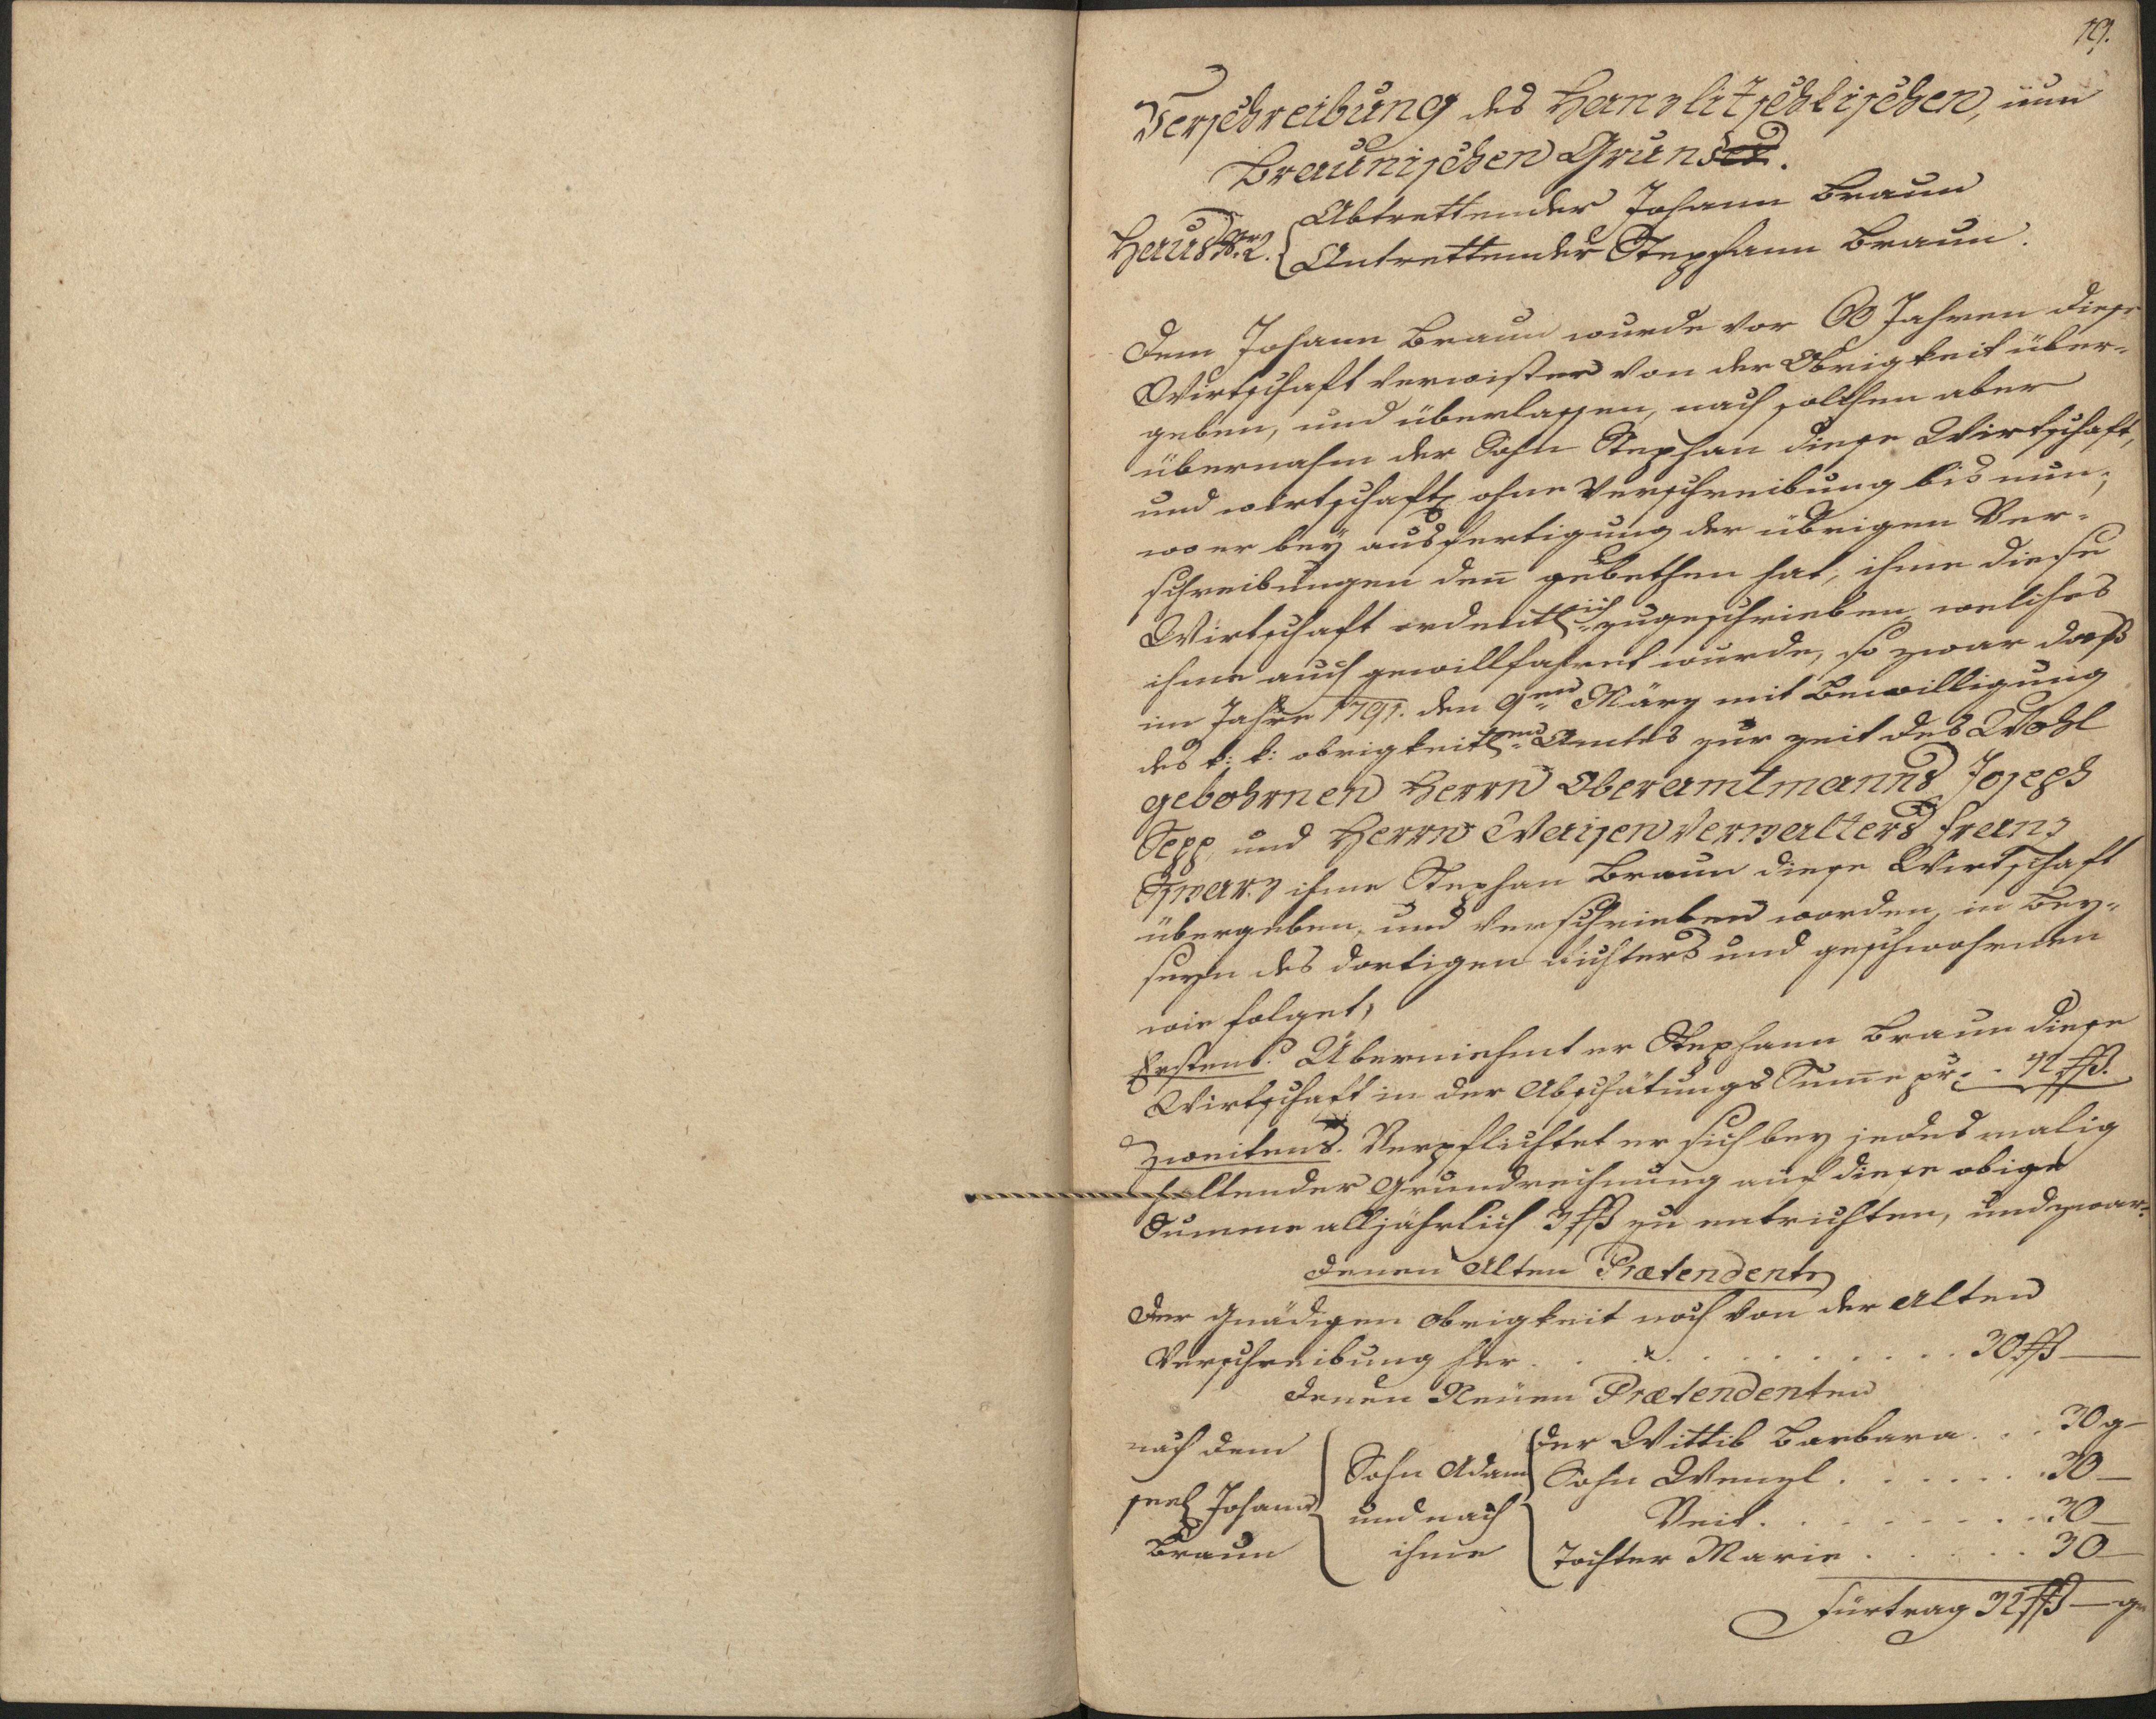 19.
Verschreibung des Hanzlitschkischen, nun
Braunischen Grundes.
Haus Nr. 2. Abtrettender Johann Braun
Antrettender Stephann Braun.
Dem Johann Braun wurde vor 60 Jahren diese
Wirtschaft verwister von der Obrigkeit über-
geben, und überlassen, nach solchen aber
übernahm der Sohn Stephan diese Wirtschaft,
und wirtschaft ohne Verschreibung bis nun,
wo er beÿ ausfertigung der übrigen Ver-
schreibungen den gebethen hat, ihme diese
Wirtschaft ordentlich zugeschrieben, welches
ihme auch gewillfahret wurde, so zwar daß
im Jahre 1791. den 9ten März mit Bewilligung
des k: k: obrigkeitlen Amtes zur zeit des Wohl
gebohrnen Herrn Oberamtmanns Joseph
Sepp, und Herrn Waisen Verwalters Franz
ihme Stephan Braun diese Wirtschaft
übergeben, und verschrieben worden, in bey-
seyn des dortigen Richters und geschwohrnen
wie folget,
Erstens. Überniehmt er Stephann Braun diese
Wirtschaft in der Abschätungs Sume pr. . 42 ßß.
Zweitens. Verpflichtet er sich bey jedesmalig
haltender Grundrechnung auf diese obige
Summe alljährlich 3 ßß zu entrichten, und zwar:
Denen Alten Prætendenten
Der Gnädigen Obrigkeit noch von der Alten
Verschreibung her . . . . . . . . . . 30 ßß —
Denen Neuen Prætendenten
nach dem Sohn Adam der Wittib Barbara . . 30 g —
seel Johann und nach Sohn Wenzl . . . . . . 30 —
Braun ihme Veit . . . . . . . . 30 —
Tochter Marie . . . . . 30 —
Fürtrag 32 ßß — g